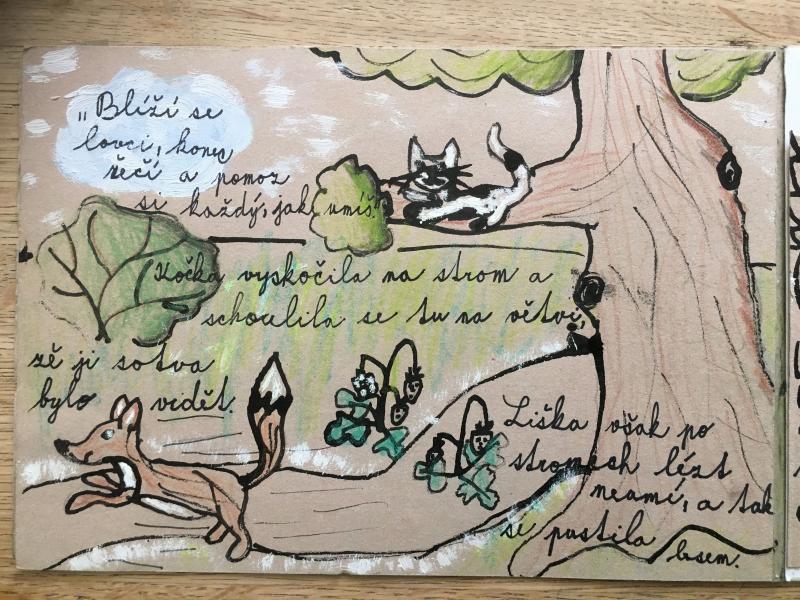 „Blíží se
lovci, konec
řečí a pomoz
si každý, jak umíš."
Kočka vyskočila na strom a
schoulila se tu na větvi,
zě ji sotva
bylo vidět.
Liška však po
stromech lézt
neumí, a tak
se pustila
lesem.